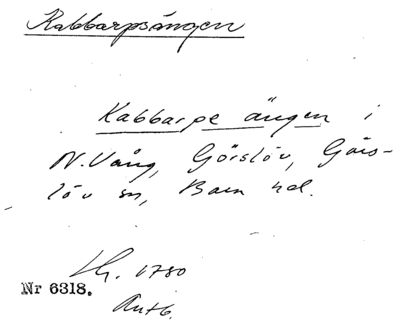 Kabbarpsängen
Kabbarpe ängen i
N. Vång, Görslöv, Görs-
löv sn, Bara hd.
Lh. 1780
Nr 6318.
Avtb.